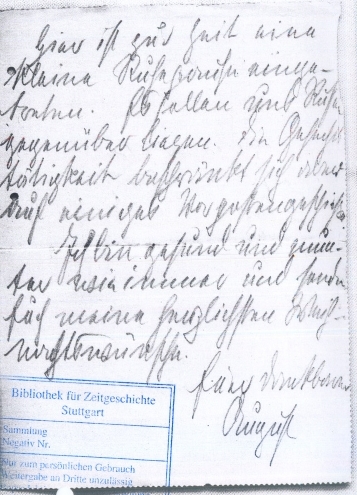 Hier ist zur Zeit eine
kleine Ruhepause einge-
treten. Es sollen uns Russen
gegenüber liegen. Die Gefechts-
tätigkeit beschränkt sich aber
auf einiges Vorpostengeplänkel.
Ich bin gesund und mun-
ter wie immer und sende
Euch meine herzlichsten Weih-
nachtswünsche.
Euer dankbarer
August
Bibliothek für Zeitgeschichte
Stuttgart
Sammlung
Negativ Nr.
Nur zum persönlichen Gebrauch
Weitergabe an Dritte unzulässig